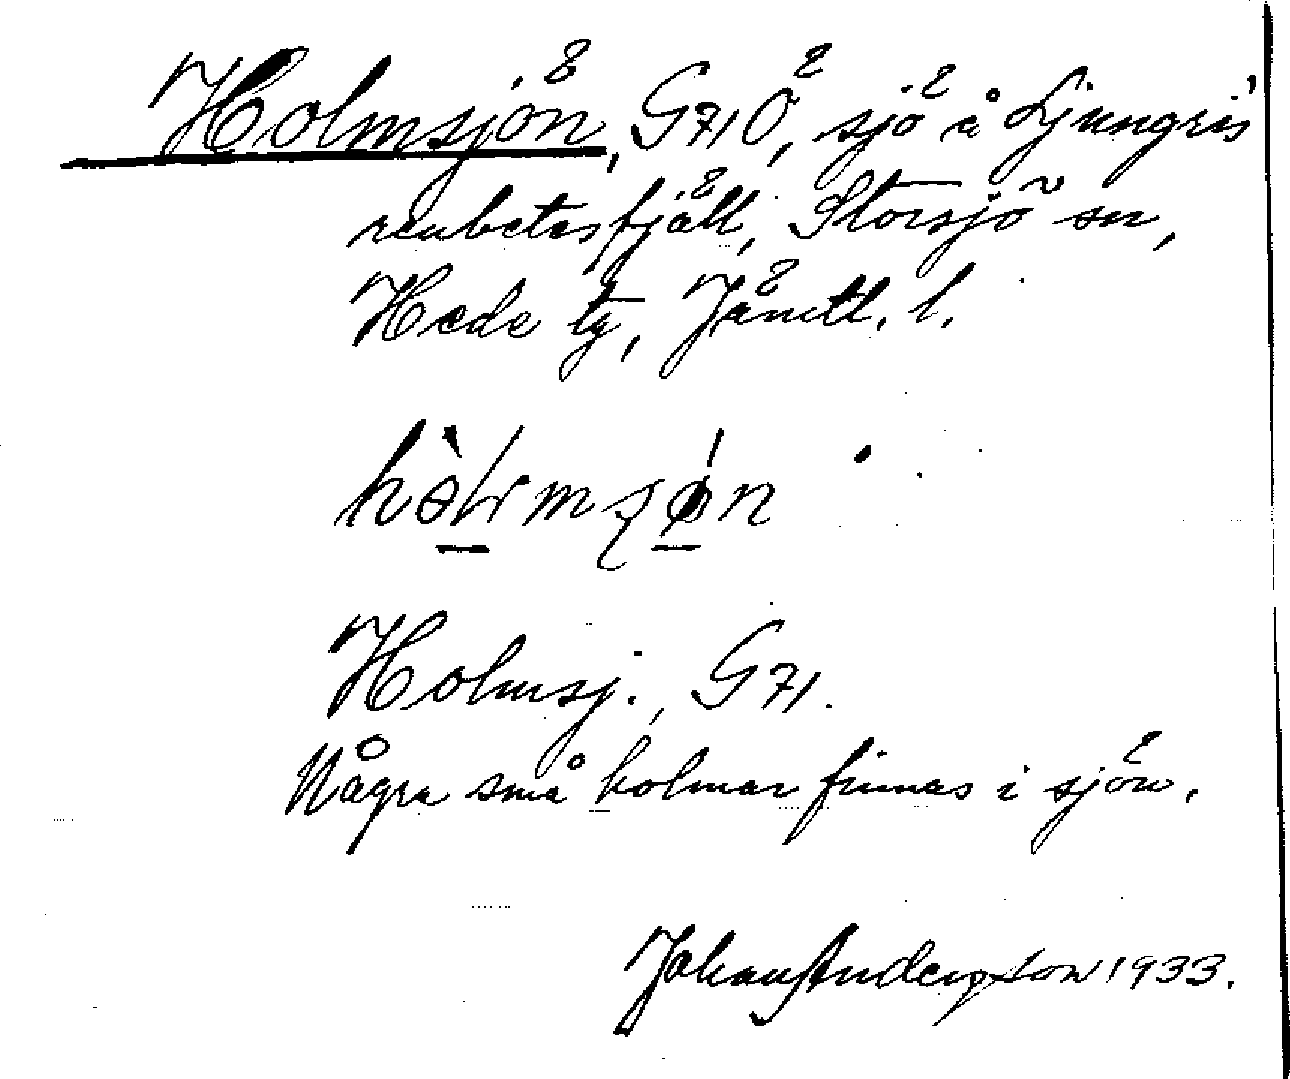 Holmsjön, G71Ö, sjö å Ljungris
renbetesfjäll, Storsjö sn,
Hede tg, Jämtl. l.
Holmsj., G71.
Några små holmar finnas i sjön.
Johan Andersson 1933.